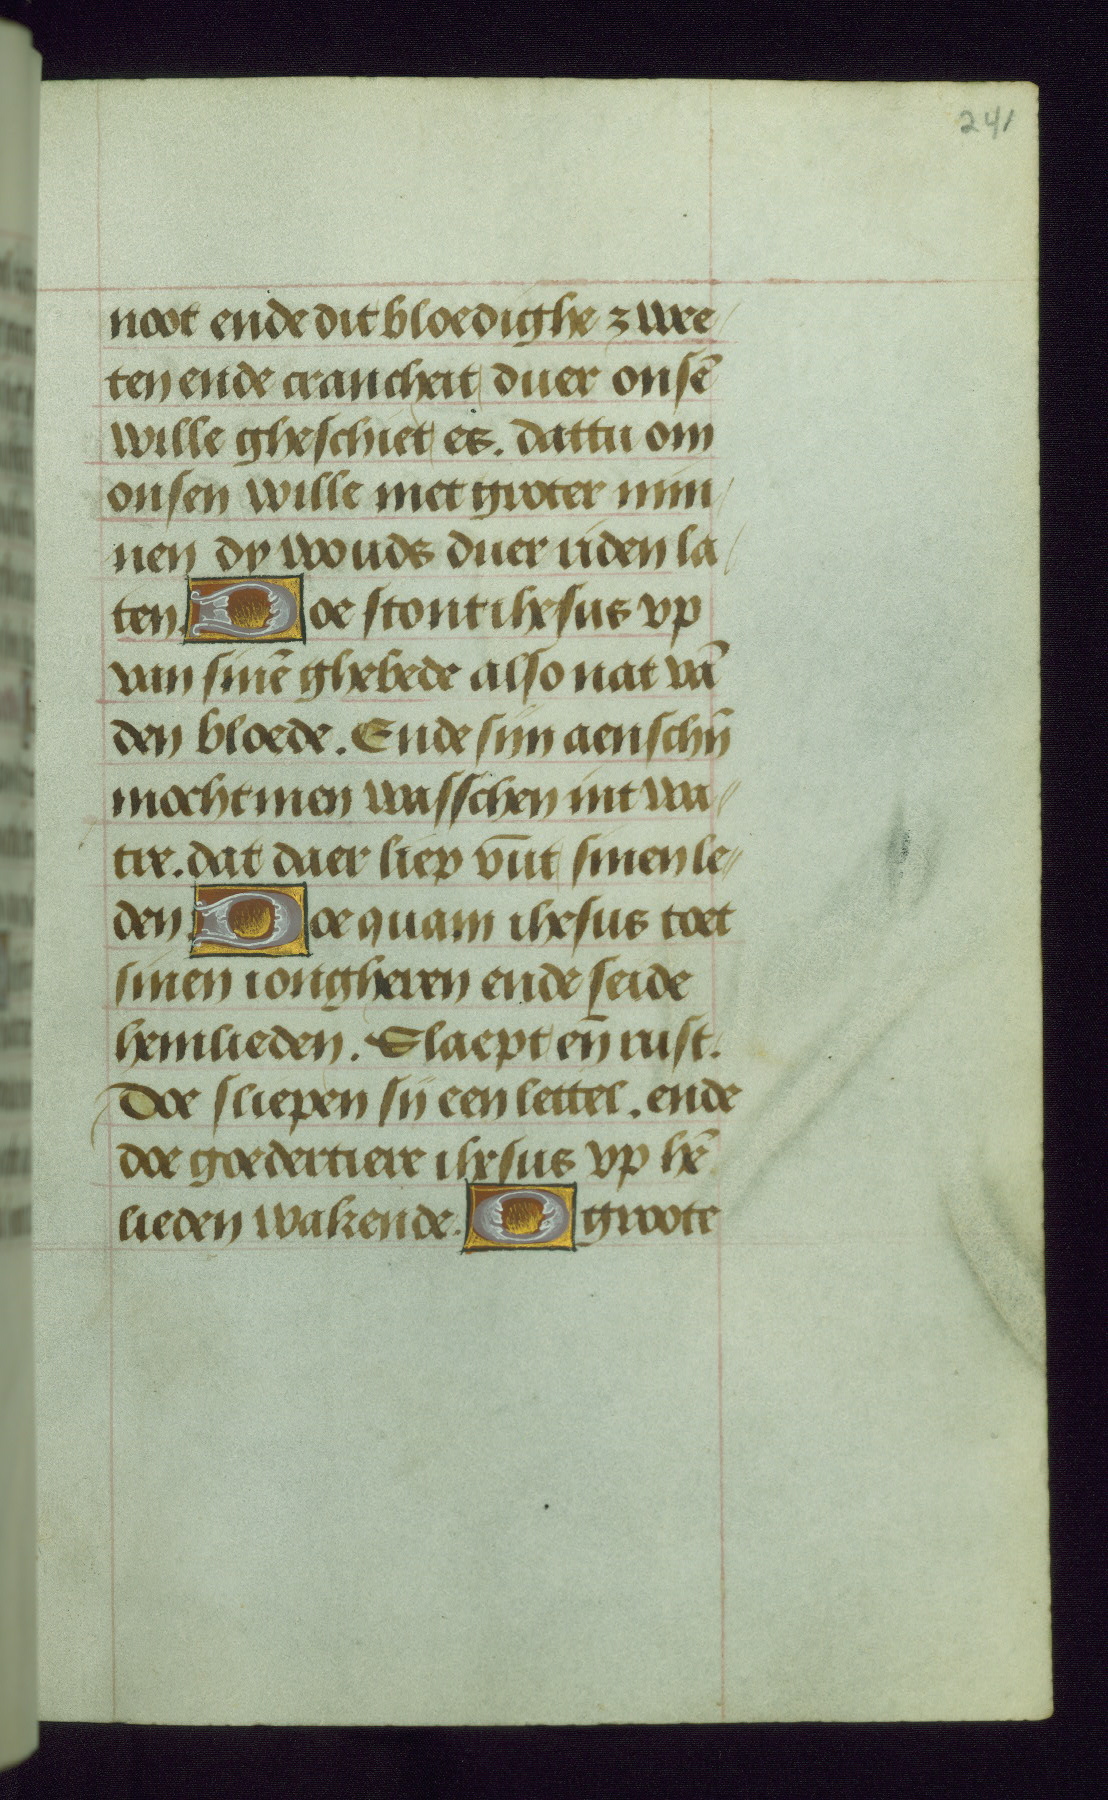 241
noot ende dit bloedighe zwee/
ten ende crancheit duer onsē
wille gheschiet es. dattu om
onsen wille met groter min/
nen dy wouds duer liden la/
ten. Doe stont ihesus vp
van sinē ghebede also nat vā
den bloede. Ende sijn aenschijn
mochtmen wasschen int wa//
tre. dat daer liep vūt sinen le//
den. Doe quam ihesus toet
sinen iongheren ende seide
hemlieden. Slaept eñ rust.
Doe sliepen sij een lettel. ende
doe goedertiere ihesus vp hē
lieden wakende. O groote